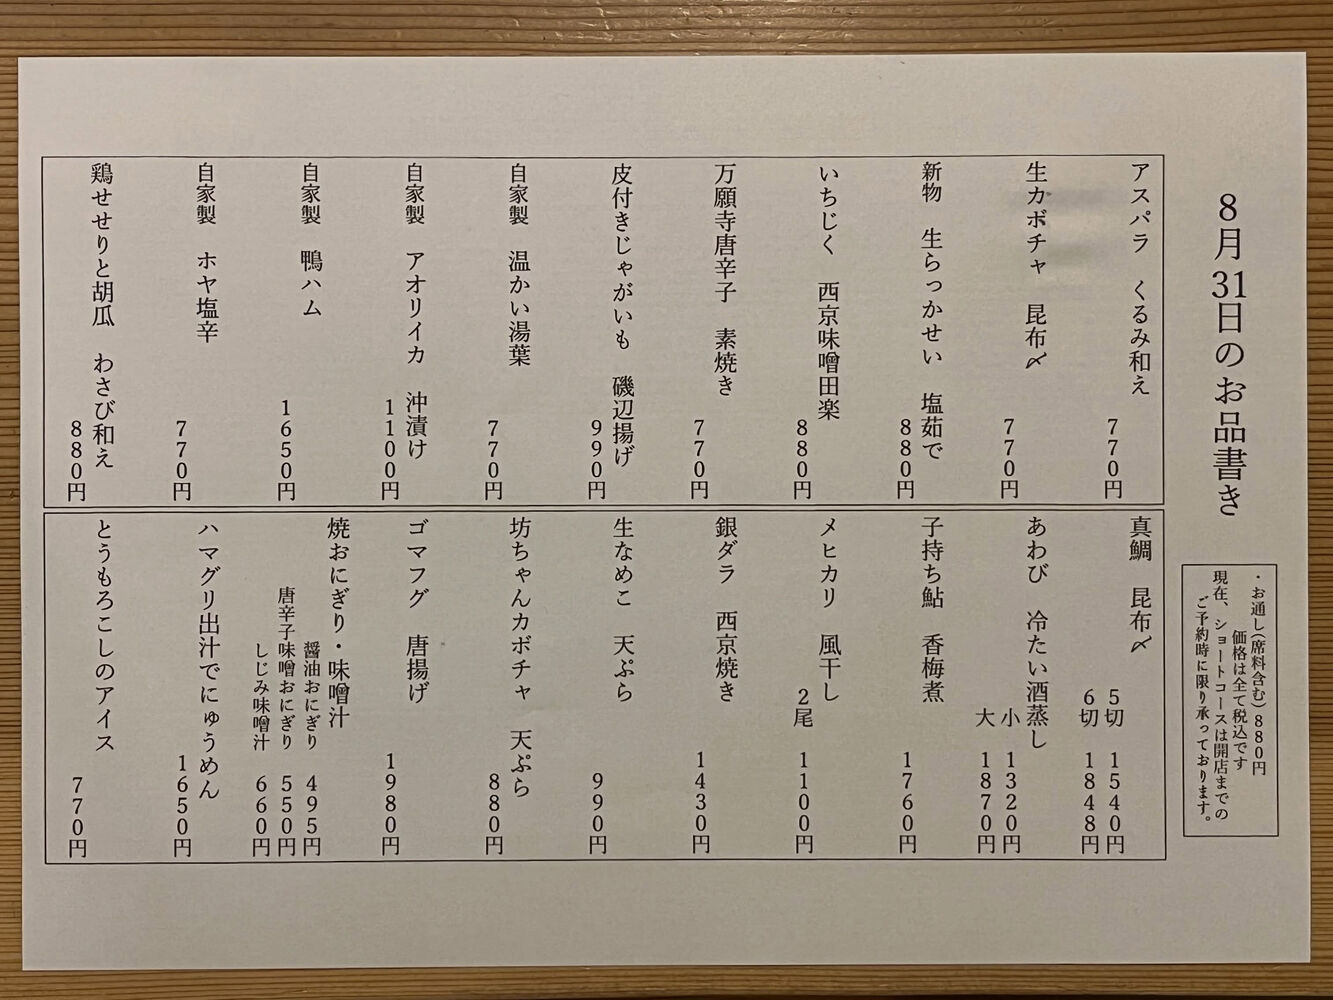 8月31日のお品書き
・お通し(席料含む)880円
価格は全て税込です
現在、ショートコースは開店までの
ご予約時に限り承っております。
アスパラ　くるみ和え
770円
生カボチャ　昆布〆
770円
新物　生らっかせい　塩茹で
880円
いちじく　西京味噌田楽
880円
万願寺唐辛子　素焼き
770円
皮付きじゃがいも　磯辺揚げ
990円
自家製　温かい湯葉
770円
自家製　アオリイカ　沖漬け
1100円
自家製　鴨ハム
1650円
自家製　ホヤ塩辛
770円
鶏せせりと胡瓜　わさび和え
880円
真鯛　昆布〆
5切　1540円
6切　1848円
あわび　冷たい酒蒸し
小　1320円
大　1870円
子持ち鮎　香梅煮
1760円
メヒカリ　風干し
2尾　1100円
銀ダラ　西京焼き
1430円
生なめこ　天ぷら
990円
坊ちゃんカボチャ　天ぷら
880円
ゴマフグ　唐揚げ
1980円
焼おにぎり・味噌汁
醤油おにぎり　495円
唐辛子味噌おにぎり　550円
しじみ味噌汁　660円
ハマグリ出汁でにゅうめん
1650円
とうもろこしのアイス
770円